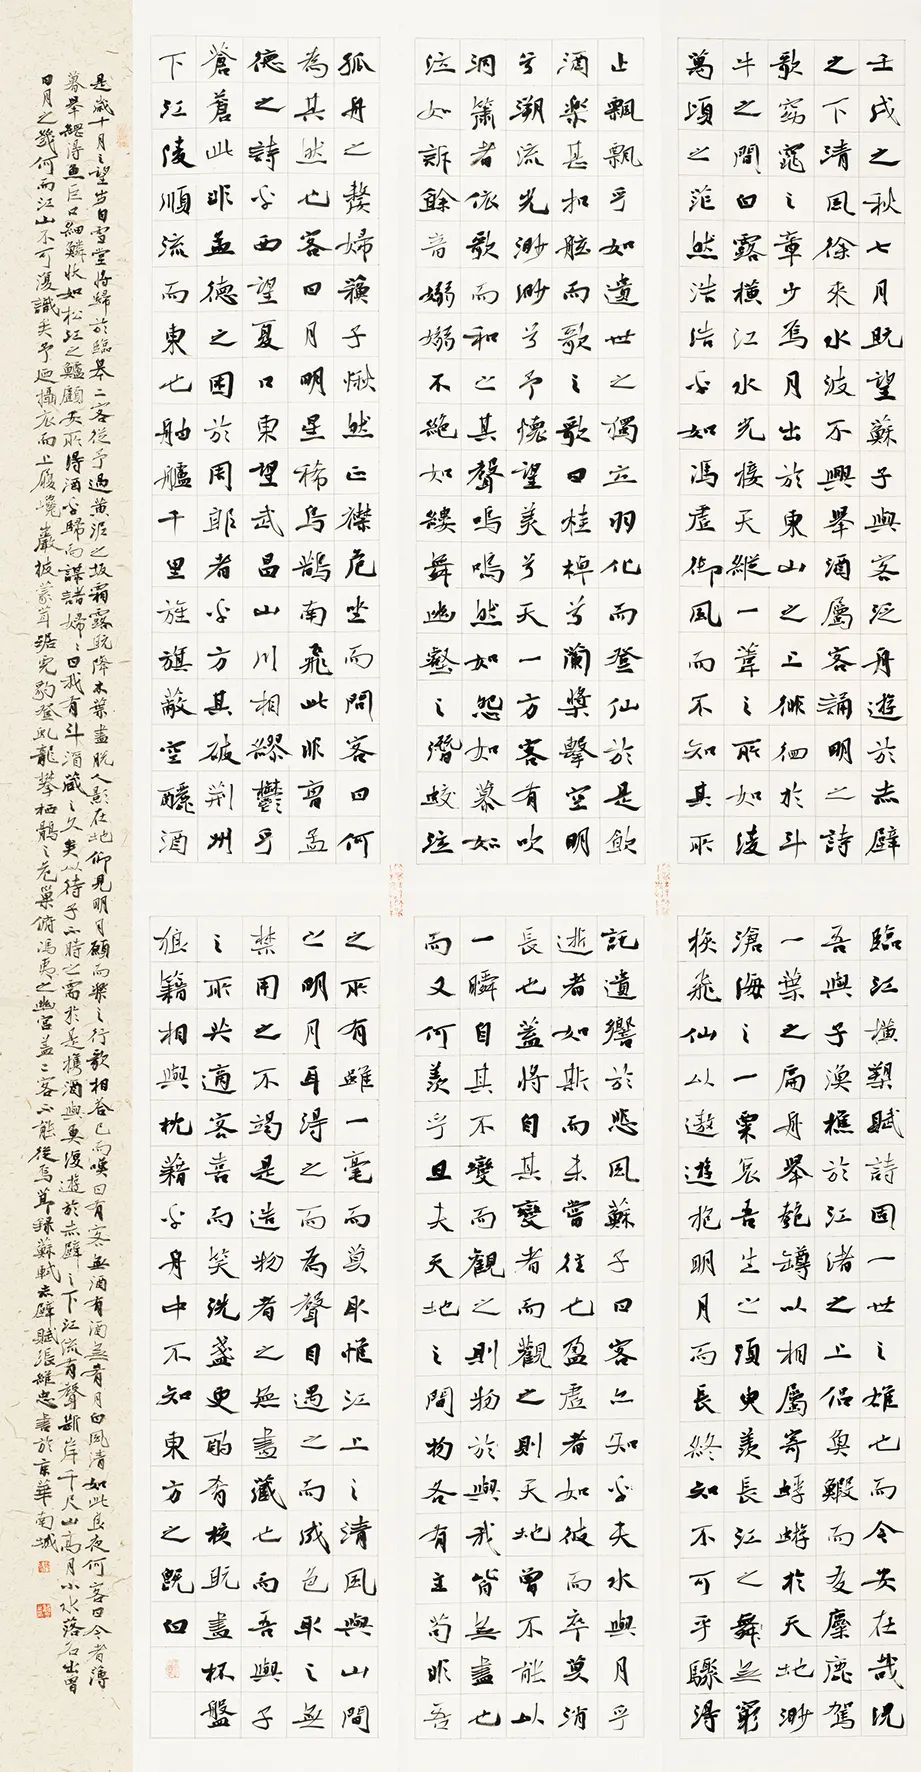 壬戌之秋七月既望蘇子與客泛舟遊於赤壁
之下清風徐來水波不興舉酒屬客誦明之詩
歌窈窕之章少焉月出於東山之上徘徊於斗
牛之間白露橫江水光接天縱一葦之所如凌
萬頃之茫然浩浩乎如馮虛御風而不知其所
止飄飄乎如遺世之獨立羽化而登仙於是飲
酒樂甚扣舷而歌之歌曰桂棹兮蘭槳擊空明
兮溯流光渺渺兮予懷望美兮天一方客有吹
洞簫者依歌而和之其聲嗚嗚然如怨如慕如
泣如訴餘音嫋嫋不絕如縷舞幽壑之潛蛟泣
孤舟之嫠婦蘇子愀然正襟危坐而問客曰何
為其然也客曰月明星稀烏鵲南飛此非曹孟
德之詩乎西望夏口東望武昌山川相繆鬱乎
蒼蒼此非孟德之困於周郎者乎方其破荊州
下江陵順流而東也舳艫千里旌旗蔽空釃酒
臨江橫槊賦詩固一世之雄也而今安在哉況
吾與子漁樵於江渚之上侶魚鰕而友麋鹿駕
一葉之扁舟舉匏罇以相屬寄蜉蝣於天地渺
滄海之一粟哀吾生之須臾羨長江之無窮
挾飛仙以遨遊抱明月而長終知不可乎驟得
託遺響於悲風蘇子曰客亦知乎夫水與月乎
逝者如斯而未嘗往也盈虛者如彼而卒莫消
長也蓋將自其變者而觀之則天地曾不能以
一瞬自其不變而觀之則物於與我皆無盡也
而又何羨乎且夫天地之間物各有主苟非吾
之所有雖一毫而莫取惟江上之清風與山間
之明月耳得之而為聲目遇之而成色取之無
禁用之不竭是造物者之無盡藏也而吾與子
之所共適客喜而笑洗盞更酌肴核既盡杯盤
狼籍相與枕藉乎舟中不知東方之既白
是歲十月之望步自雪堂將歸於臨皋二客從予過黃泥之坂霜露既降木葉盡脫人影在地仰見明月顧而樂之行歌相答已而嘆曰有客無酒有酒無肴月白風清如此良夜何客曰今者薄
暮舉網得魚巨口細鱗狀如松江之鱸顧安所得酒乎歸而謀諸婦婦曰我有斗酒藏之久矣以待子不時之需於是攜酒與魚復遊於赤壁之下江流有聲斷岸千尺山高月小水落石出曾
日月之幾何而江山不可復識矣予迺攝衣而上履巉巖披蒙茸踞虎豹登虬龍攀栖鶻之危巢俯馮夷之幽宮蓋二客不能從焉節錄蘇軾赤壁賦張維忠書於京華南城